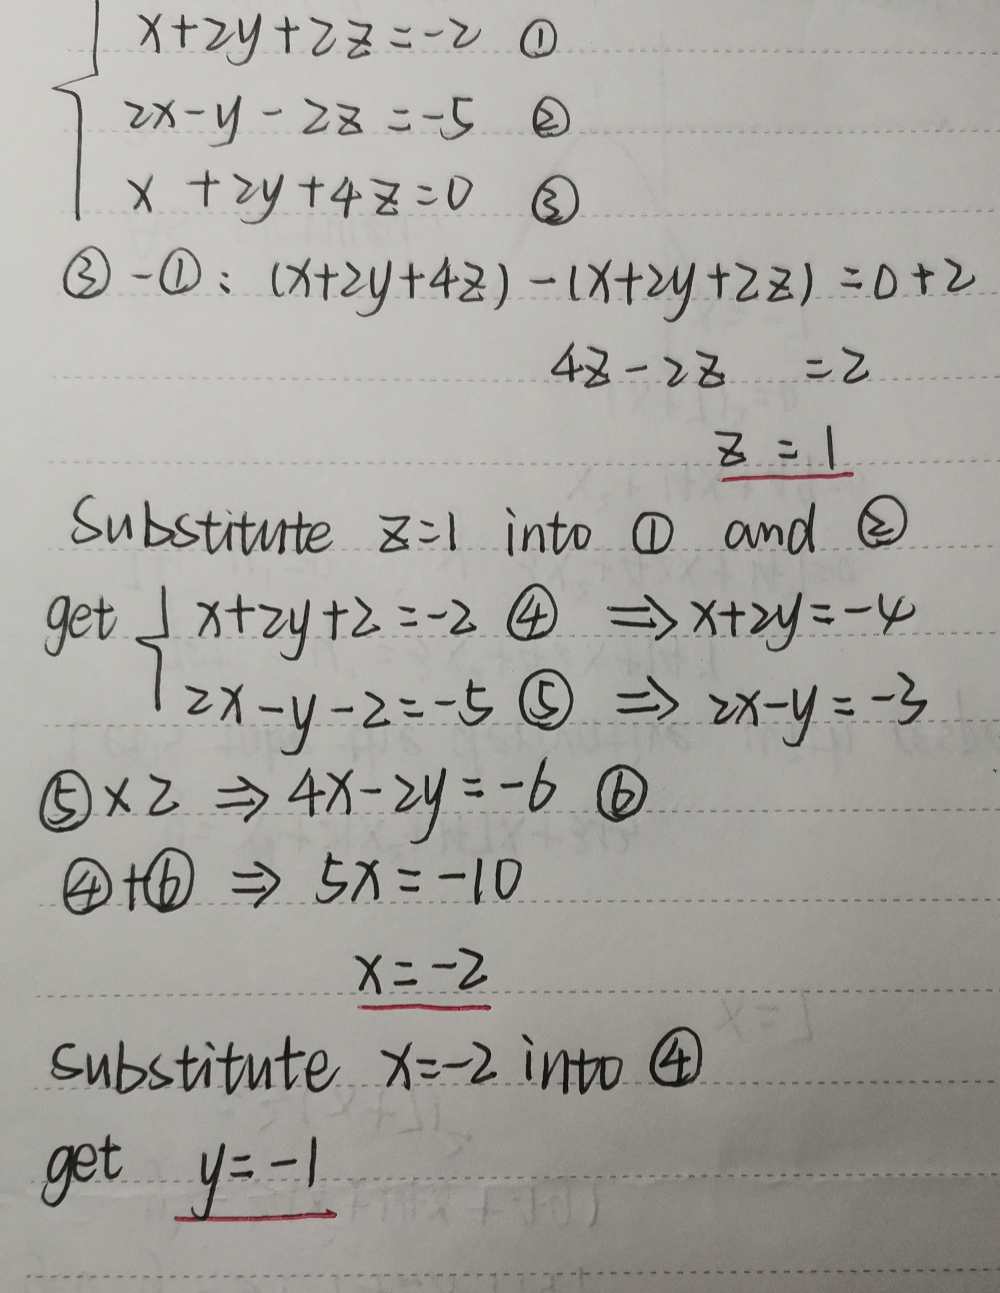 x+2y+2z=-2 ①
2x-y-2z=-5 ②
x+2y+4z=0 ③
③-①: (x+2y+4z)-(x+2y+2z)=0+2
4z-2z =2
z=1
Substitute z=1 into ① and ②
get x+2y+2=-2 ④ ⇒ x+2y=-4
2x-y-2=-5 ⑤ ⇒ 2x-y=-3
⑤×2 ⇒ 4x-2y=-6 ⑥
④+⑥ ⇒ 5x=-10
x=-2
substitute x=-2 into ④
get y=-1